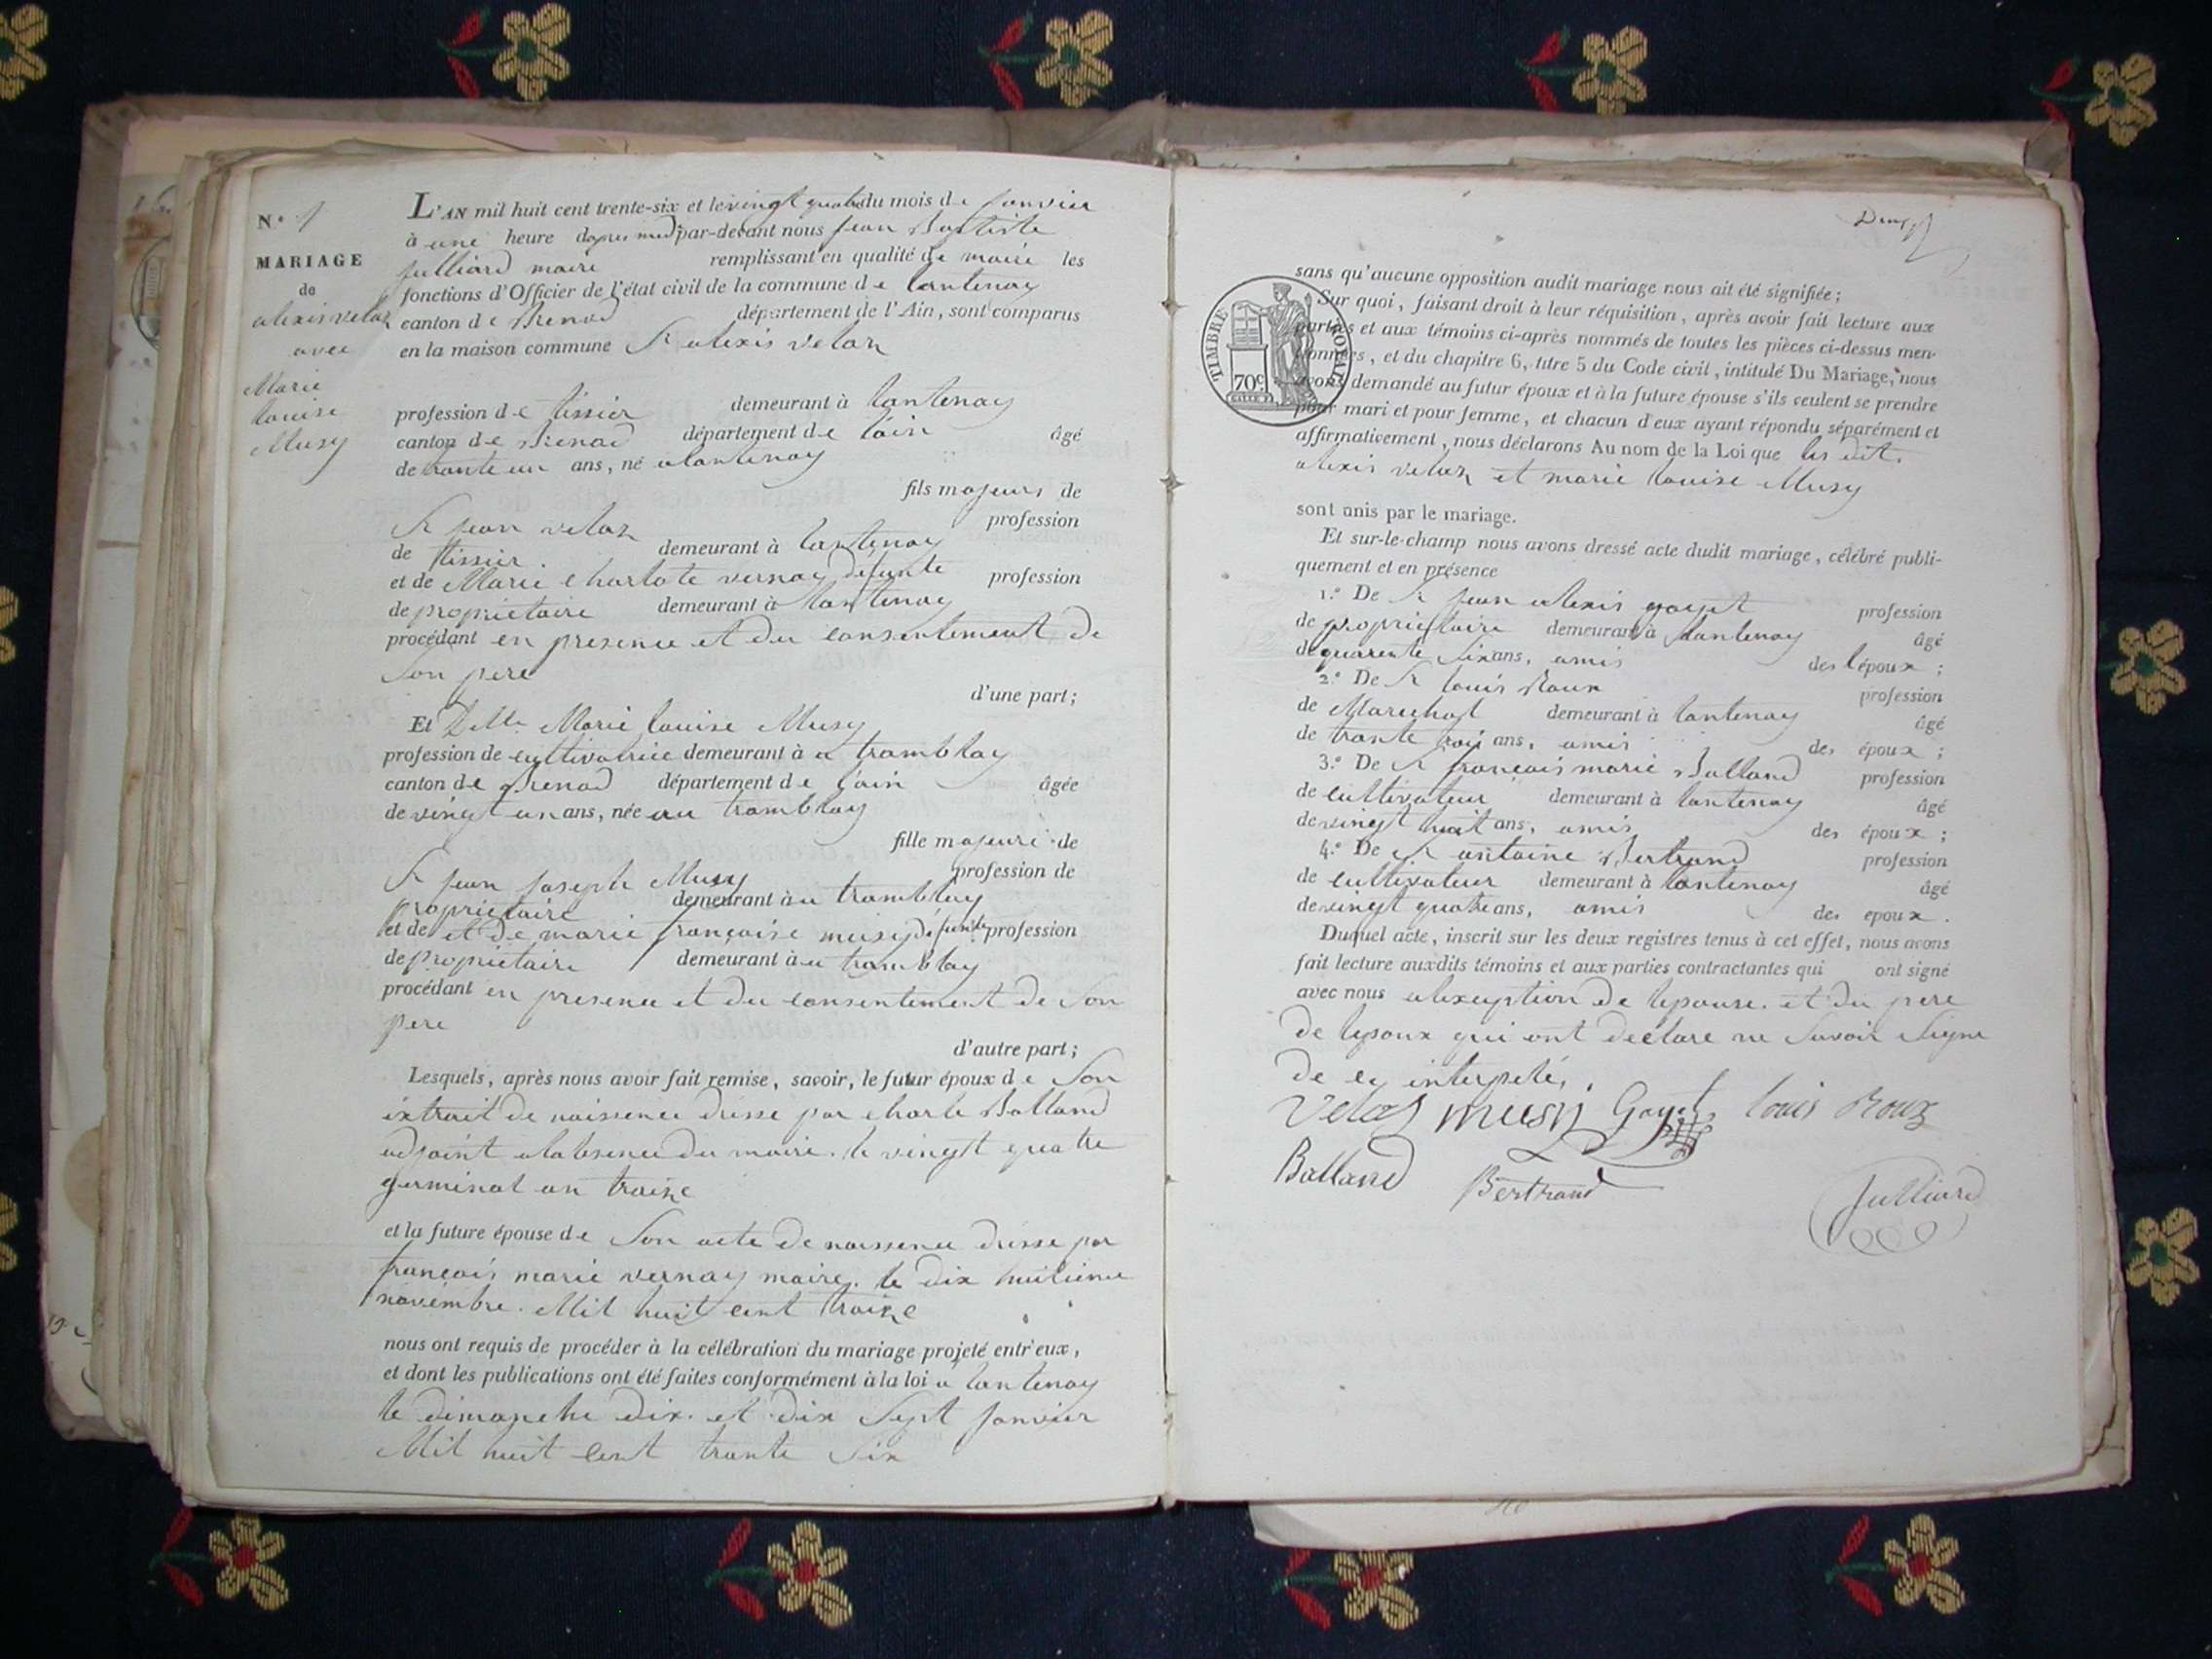 N.° 1
MARIAGE
de
alexis velaz
avec
Marie
louise
Musy
L'AN mil huit cent trente-six et le vingt quatre du mois de janvier
à une heure dapres midi par-devant nous jean Baptiste
julliard maire remplissant en qualité de maire les
fonctions d'Officier de l'état civil de la commune de lantenay
canton de Brenod département de l'Ain, sont comparus
en la maison commune Sr alexis velaz
profession de tissier demeurant à lantenay
canton de Brenod département de lain âgé
de trante un ans, né a lantenay
fils majeur de
Sr jean velaz profession
de tissier demeurant à lantenay
et de Marie charlote vernay défunte profession
de propriétaire demeurant à lantenay
procédant en presence et du consentement de
Son pere
d'une part;
Et Delle Marie louise Musy
profession de cultivatrice demeurant à u tramblay
canton de Brenod département de lain âgée
de vingt un ans, née au tramblay
fille majeure de
Sr jean joseph Musy profession de
propriétaire demeurant à u tramblay
et de et de marie françoise musy défunte profession
de propriétaire demeurant à u tramblay
procédant en presence et du consentement de Son
pere
d'autre part;
Lesquels, après nous avoir fait remise, savoir, le futur époux de Son
extrait de naissence drisse par charle Balland
adjoint a labsence du maire. le vingt quatre
germinal an traize
et la future épouse de Son acte de naissence drisse par
françois marie vernay maire. le dix huitieme
novembre. Mil huit cent traize
nous ont requis de procéder à la célébration du mariage projeté entr'eux,
et dont les publications ont été faites conformément à la loi a lantenay
le dimanche dix et dix Sept janvier
Mil huit cent trante Six
Deux
sans qu'aucune opposition audit mariage nous ait été signifiée;
Sur quoi, faisant droit à leur réquisition, après avoir fait lecture aux
parties et aux témoins ci-après nommés de toutes les pièces ci-dessus men-
tionnées, et du chapitre 6, titre 5 du Code civil, intitulé Du Mariage, nous
avons demandé au futur époux et à la future épouse s'ils veulent se prendre
pour mari et pour femme, et chacun d'eux ayant répondu séparément et
affirmativement, nous déclarons Au nom de la Loi que les dit.
alexis velaz et marie louise Musy
sont unis par le mariage.
TIMBRE ROYAL
70c.
Et sur-le-champ nous avons dressé acte dudit mariage, célébré publi-
quement et en présence
1.° De Sr jean alexis goyet profession
de propriétaire demeurant à lantenay âgé
de quarente Six ans, amis des l époux;
2.° De Sr louis Roux profession
de Marechal demeurant à lantenay âgé
de trante trois ans, amis des époux;
3.° De Sr françois marie Balland profession
de cultivateur demeurant à lantenay âgé
de vingt huit ans, amis des époux;
4.° De Sr antoine Bertrand profession
de cultivateur demeurant à lantenay âgé
de vingt quatre ans, amis des epoux.
Duquel acte, inscrit sur les deux registres tenus à cet effet, nous avons
fait lecture auxdits témoins et aux parties contractantes qui ont signé
avec nous alexeption de lepouse. et du pere
de lepoux qui ont declare ne Savoir Signe
de ey interpelé,
Velaz musy Goyet louis Roux
Balland Bertrand
Julliard